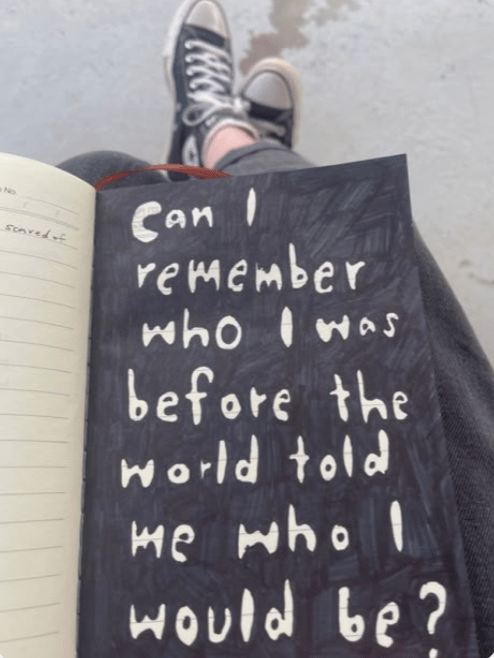 No.
scared of
Can I
remember
who I was
before the
world told
me who I
would be?